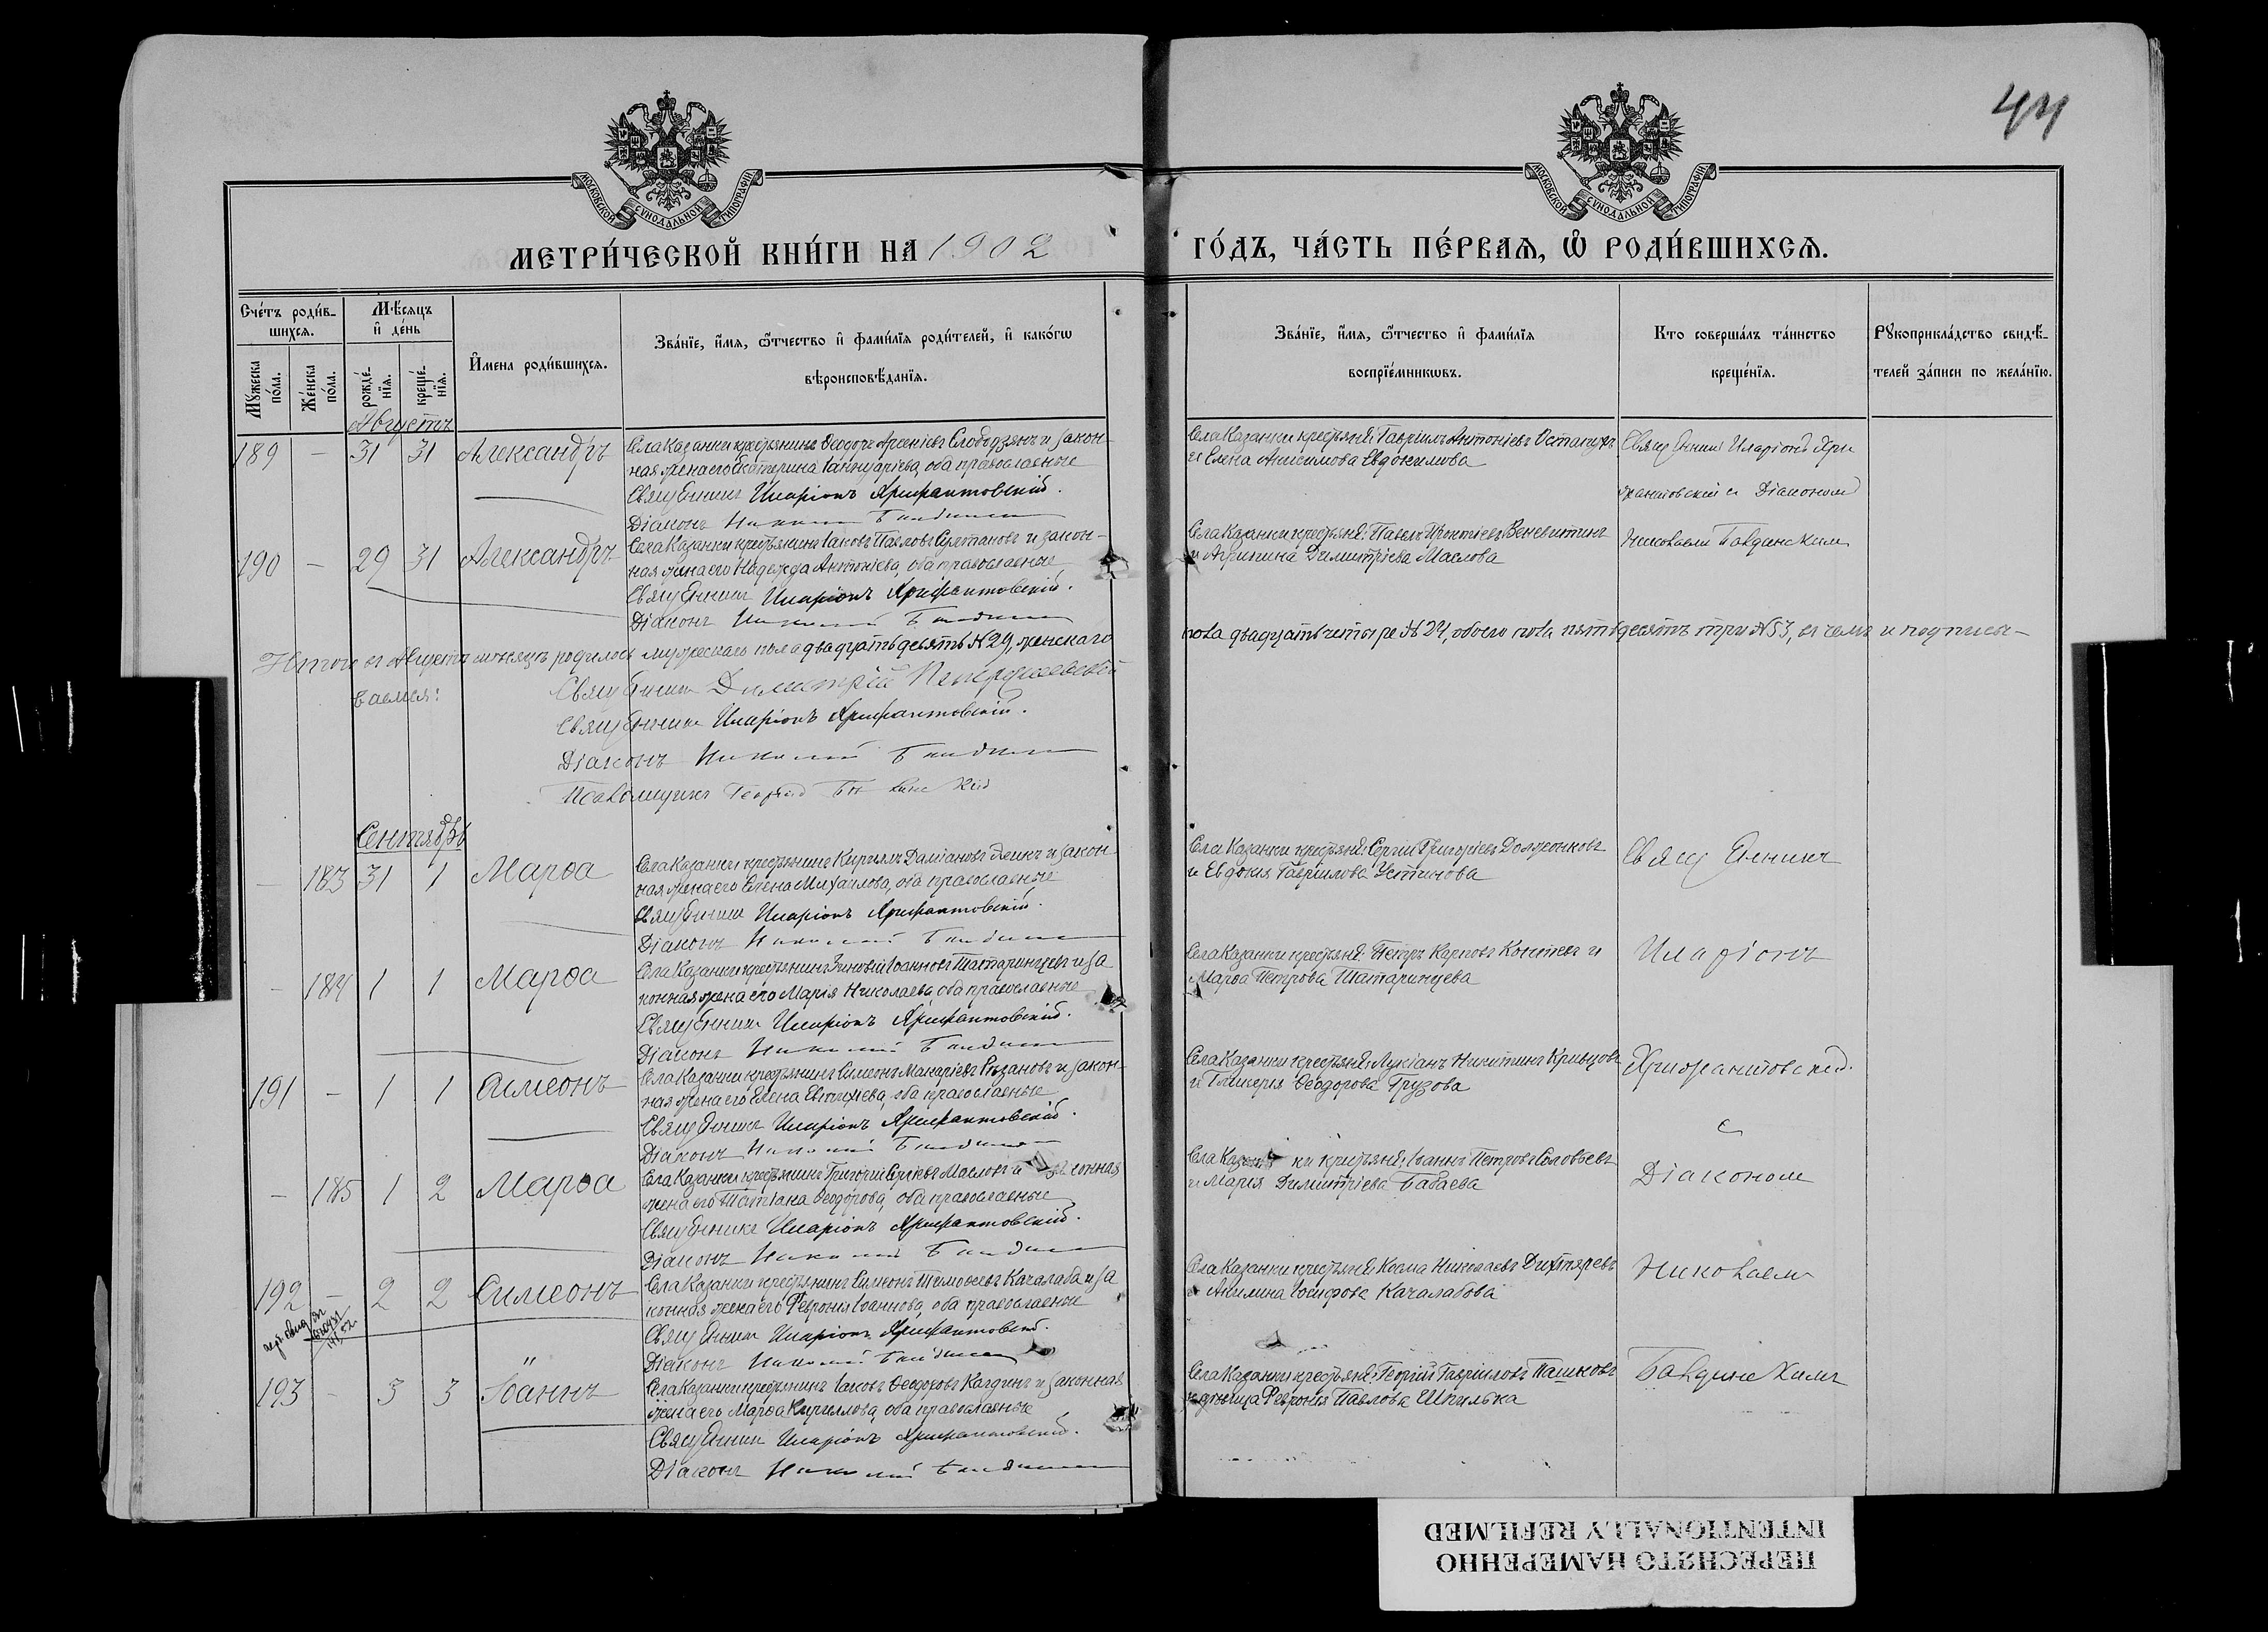 44
МОСКОВСКОЙ СѴНОДАЛЬНОЙ ТИПОГРАФІИ
МОСКОВСКОЙ СѴНОДАЛЬНОЙ ТИПОГРАФІИ
МЕТРИ́ЧЕСКОЙ КНИ́ГИ НА 1902
ГО́ДЪ, ЧА́СТЬ ПЕ́РВАѦ, Ѽ РОДИ́ВШИХСѦ.
Сче́тъ роди́в-
шихсѧ.
Мѣ́сѧцъ
и҆ де́нь
Мꙋ́жеска по́ла.
Же́нска по́ла.
рожде́-нїѧ.
креще́-нїѧ.
И҆мена роди́вшихсѧ.
Зва́нїе, и҆́мѧ, ѻ҆́тчество и҆ фами́лїѧ роди́телей, и҆ како́гѡ
вѣроисповѣ́данїѧ.
Зва́нїе, и҆́мѧ, ѻ҆́тчество и҆ фами́лїѧ
воспрїе́мникѡвъ.
Кто соверша́лъ та́инство
креще́нїѧ.
Рꙋкоприкла́дство свидѣ́-
телей за́писи по жела́нїю.
Августъ
189 – 31 31 Александръ
Села Казанки крестьянинъ Ѳеодоръ Арсеніевъ Слободзянъ и закон-
ная жена его Екатерина Іаннуаріева, оба православные
Священникъ Иларіонъ Хрисантовскій.
Діаконъ Николай
Села Казанки крестьяне: Гавріилъ Антоніевъ Остапчукъ
и Елена Анисимова Евдокимова
Священникъ Иларіонъ Хри
сантовскій съ Діакономъ
190 – 29 31 Александръ
Села Казанки крестьянинъ Іаковъ Павловъ Султановъ и закон-
ная жена его Надежда Антоніева, оба православные
Священникъ Иларіонъ Хрисантовскій.
Діаконъ Николай
Села Казанки крестьяне: Павелъ Веневитинъ
и Акрипина Димитріева Маслова
Николаемъ
Итого въ Августѣ мѣсяцѣ родилось мужескаго пола двадцать девять №29, женскаго
пола двадцать четыре №24, обоего пола пятьдесятъ три №53, въ чемъ и подписы-
ваемся:
Священникъ Димитрій
Священникъ Иларіонъ Хрисантовскій.
Діаконъ Николай
Псаломщикъ Георгій
Сентябрь
– 183 31 1 Марѳа
Села Казанки крестьянинъ Кириллъ Даміановъ и закон-
ная жена его Елена Михаилова, оба православные
Священникъ Иларіонъ Хрисантовскій.
Діаконъ Николай
Села Казанки крестьяне: Сергій Григоріевъ Должонковъ
и Евдокія Гавріилова Устинова
Священникъ
– 184 1 1 Марѳа
Села Казанки крестьянинъ Зиновій Іоанновъ Шатаринцевъ и за
конная жена его Марія Николаева, оба православные
Священникъ Иларіонъ Хрисантовскій.
Діаконъ Николай
Села Казанки крестьяне: Петръ Карповъ и
Марѳа Петрова Шатаринцева
Иларіонъ
191 – 1 1 Симеонъ
Села Казанки крестьянинъ Симеонъ Макаріевъ Рязановъ и закон-
ная жена его Елена Евтихіева, оба православные
Священникъ Иларіонъ Хрисантовскій.
Діаконъ Николай
Села Казанки крестьяне: Лукіанъ Никитинъ Кривцовъ
и Гликерія Ѳеодорова Грузова
Хрисантовскій
съ
– 185 1 2 Марѳа
Села Казанки крестьянинъ Григорій Сергіевъ Масловъ и законная
жена его Татіана Ѳеодорова, оба православные
Священникъ Иларіонъ Хрисантовскій.
Діаконъ Николай
Села Казанки крестьяне: Іоаннъ Петровъ Соловьевъ
и Марія Димитріева Бабаева
Діакономъ
192 – 2 2 Симеонъ
Села Казанки крестьянинъ Симеонъ Тимоѳеевъ Качалаба и за
конная жена его Февронія Іоаннова, оба православные
Священникъ Иларіонъ Хрисантовскій.
Діаконъ Николай
Села Казанки крестьяне: Косма Николаевъ Дихтяревъ
и Акилина Іосифова Качалабова
Николаемъ
193 – 3 3 Іоаннъ
Села Казанки крестьянинъ Іаковъ Ѳеодоровъ Калдинъ и законная
жена его Марѳа Кириллова, оба православные
Священникъ Иларіонъ Хрисантовскій.
Діаконъ Николай
Села Казанки крестьяне: Георгій Гавріиловъ Пашковъ
и дѣвица Февронія Павлова Шпилька
ПЕРЕСНЯТО НАМЕРЕННО
INTENTIONALLY REFILMED